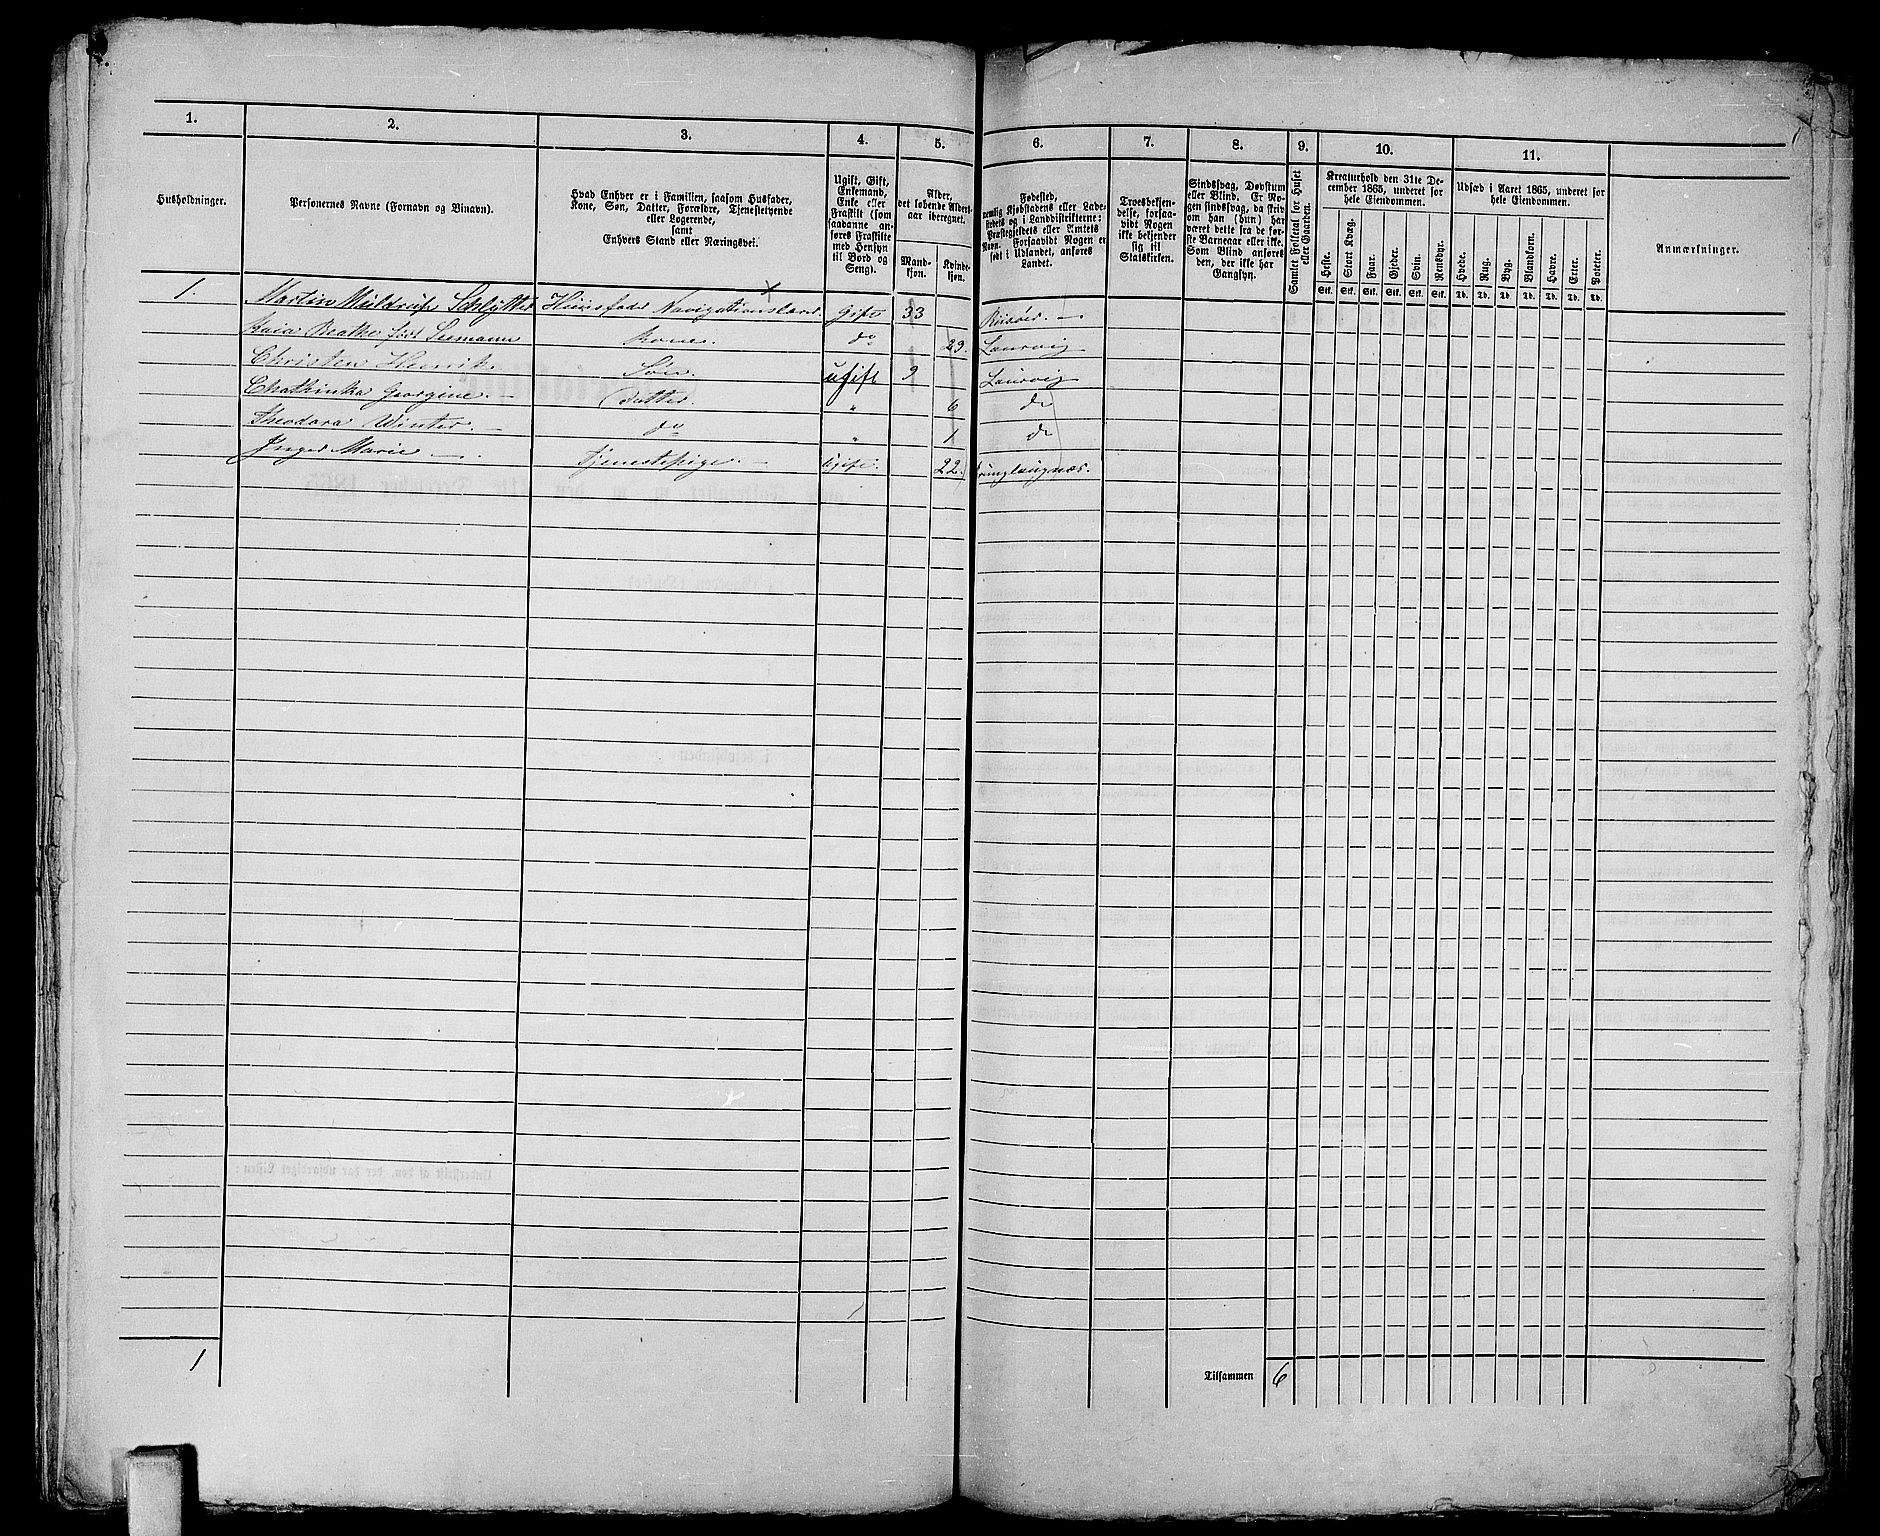 1. 2. 3. 4. 5. 6. 7. 8. 9. 10. 11.
Husholdninger.
Personernes Navne (Fornavn og Binavn).
Hvad Enhver er i Familien, saasom Husfader,
Kone, Søn, Datter, Forældre, Tjenestetyende
eller Logerende,
samt
Enhvers Stand eller Næringsvei.
Ugift, Gift,
Enkemand,
Enke eller
Fraskilt (som
saadanne an-
føres Fraskilte
med Hensyn
til Bord og
Seng).
Alder,
det løbende Alders-
aar iberegnet.
Mand-
kjøn.
Kvinde-
kjøn.
Fødested,
nemlig Kjøbstadens eller Lade-
stedets og i Landdistrikterne:
Præstegjeldets eller Amtets
Navn. Forsaavidt Nogen er
født i Udlandet, anføres
Landet.
Troesbekjen-
delse, forsaa-
vidt Nogen
ikke bekjender
sig til
Statskirken.
Sindssvag, Døvstum
eller Blind. Er No-
gen sindssvag, da skriv
om han (hun) har
været dette fra de før-
ste Barneaar eller ikke.
Som Blind anføres
den, der ikke har
Gangsyn.
Samlet Folketal for Huset
eller Gaarden.
Kreaturhold den 31te De-
cember 1865, underet for
hele Eiendommen.
Heste. Stort Kvæg. Faar. Gjeder. Svin. Rensdyr.
Stk. Stk. Stk. Stk. Stk. Stk.
Udsæd i Aaret 1865, underet for
hele Eiendommen.
Hvede. Rug. Byg. Blandkorn. Havre. Erter. Poteter.
Td. Td. Td. Td. Td. Td. Td.
Anmærkninger.
1. Martin Schlytter Huusfader Navigationslærer Gift 33 Riisöer
Kaia født Seemann Kone. do 29. Laurvig
Christen Henrik Søn ugift 9 Laurvig
Cathinka Georgine. Datter " 6 do
Theodora Winter. do " 1 do
Inger Marie Tjenestepige. Ugift. 22.
1
Tilsammen 6